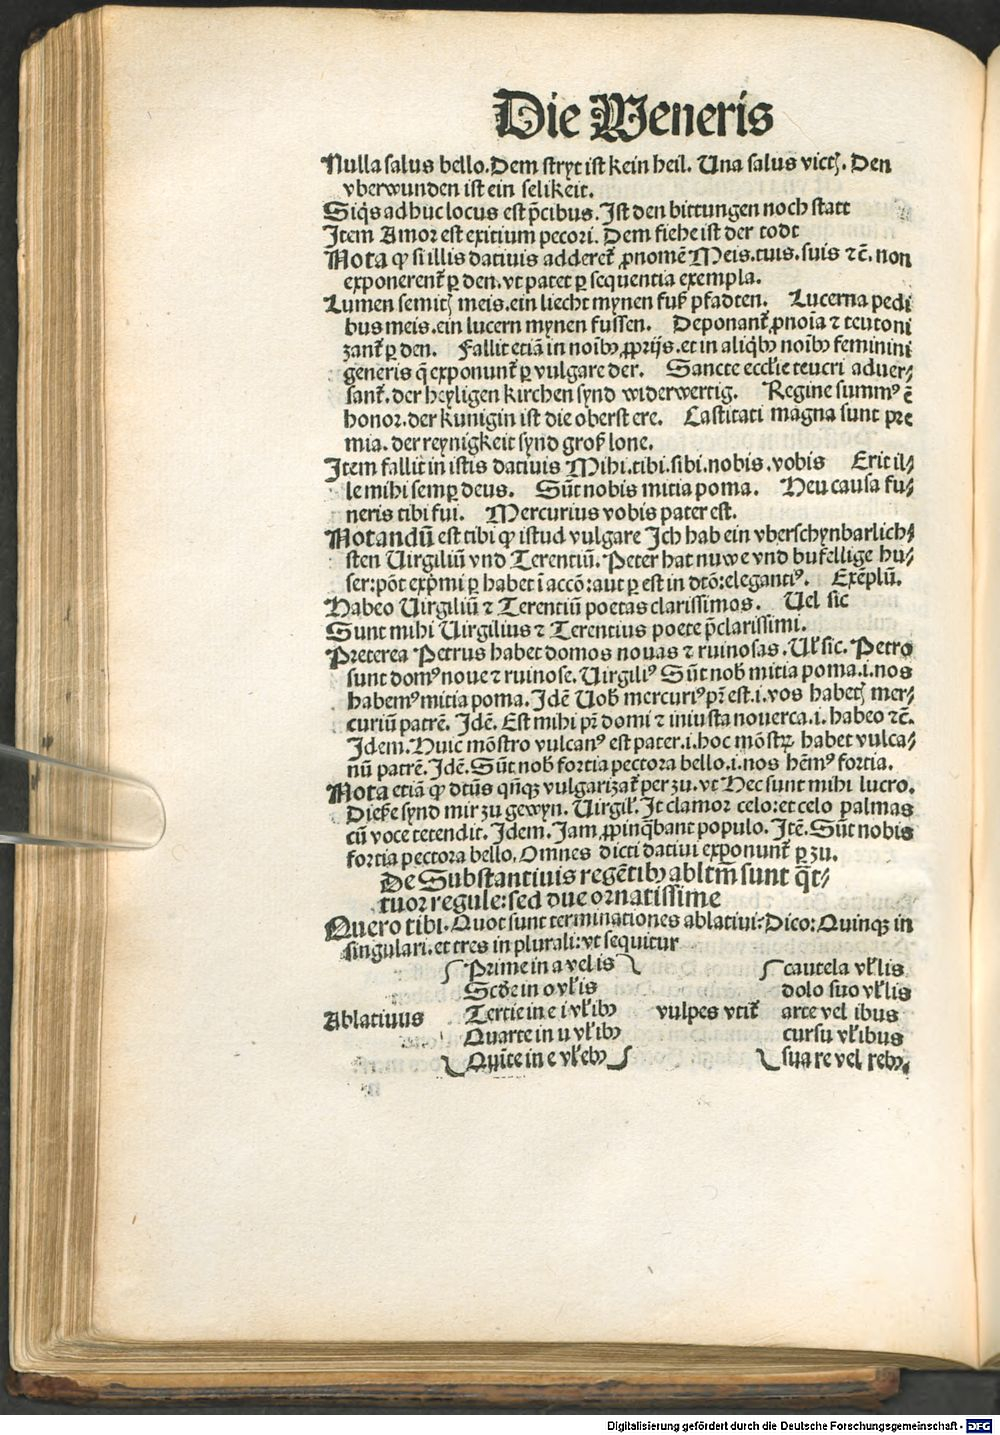 Die Veneris
Nulla salus bello. Dem stryt ist kein heil. Una salus victꝭ. Den
vberwunden ist ein selikeit.
Siq̃s adhuc locus est p̃cibus. Ist den bittungen noch statt
Item Amor est exitium pecori. Dem fiehe ist der todt
Nota ꝙ si illis dativis adderet᷑ ꝓnomẽ Meis. tuis. suis ⁊c̃. non
exponerent᷑ ꝑ den. vt patet ꝑ sequentia exempla.
Lumen semitꝭ meis. ein liecht mynen fuß pfadten. Lucerna pedi
bus meis. ein lucern mynen fussen. Deponant᷑ ꝓnoĩa ⁊ teutoni
zant᷑ ꝑ den. Fallit etiã in noĩbꝫ ꝓprijs. et in aliq̃bꝫ noĩbꝫ feminini
generis q̃ exponunt᷑ ꝑ vulgare der. Sancte eccl̃ie teucri aduer⸗
sant᷑. der heyligen kirchen synd widerwertig. Regine summꝰ ẽ
honor. der kunigin ist die oberst ere. Castitati magna sunt pre
mia. der reynigkeit synd groß lone.
Item fallit in istis dativis Mihi. tibi. sibi. nobis. vobis Erit il⸗
le mihi semꝑ deus. Sũt nobis mitia poma. Heu causa fu⸗
neris tibi fui. Mercurius vobis pater est.
Notandũ est tibi ꝙ istud vulgare Ich hab ein vberschynbarlich⸗
sten Virgiliũ vnd Terentiũ. Peter hat nuwe vnd bufellige hu⸗
ser: põt exp̃mi ꝑ habet ĩ accõ: aut ꝑ est in dtõ: elegantiꝰ. Exẽplũ.
Habeo Virgiliũ ⁊ Terentiũ poetas clarissimos. Vel sic
Sunt mihi Virgilius ⁊ Terentius poete p̃clarissimi.
Preterea Petrus habet domos novas ⁊ ruinosas. Vl̃ sic. Petro
sunt domꝰ noue ⁊ ruinose. Virgiliꝰ Sũt nob̃ mitia poma. i. nos
habemꝰ mitia poma. Idẽ Uob̃ mercuriꝰ pr̃ est. i. vos habetꝭ mer⸗
curiũ patrẽ. Idẽ. Est mihi pr̃ domi ⁊ iniusta nouerca. i. habeo ⁊c̃.
Idem. Huic mõstro vulcanꝰ est pater. i. hoc mõstꝝ habet vulca⸗
nũ patrẽ. Idẽ. Sũt nob̃ fortia pectora bello. i. nos hẽmꝰ fortia.
Nota etiã ꝙ dtũs qñqꝫ vulgarizat᷑ per zu. vt Hec sunt mihi lucro.
Dieße synd mir zu gewyn. Virgil̃. It clamor celo: et celo palmas
cũ voce tetendit. Idem. Jam ꝓpinq̃bant populo. Itẽ. Sũt nobis
fortia pectora bello. Omnes dicti dativi exponunt᷑ ꝑ zu.
De Substantivis regẽtibꝫ abl̃tm̃ sunt q̃t⸗
tuor regule: sed due ornatissime
Quero tibi. Quot sunt terminationes ablativi? Dico: Quinqꝫ in
singulari. et tres in plurali: vt sequitur
Prime in a vel is cautela vl̃ lis
Scd̃e in o vl̃ is dolo suo vl̃ lis
Ablativus Tertie in e i vl̃ ibꝫ vulpes vtit᷑ arte vel ibus
Quarte in u vl̃ ibꝫ cursu vl̃ ibus
Quĩte in e vl̃ ebꝫ sua re vel rebꝫ.
Digitalisierung gefördert durch die Deutsche Forschungsgemeinschaft - DFG